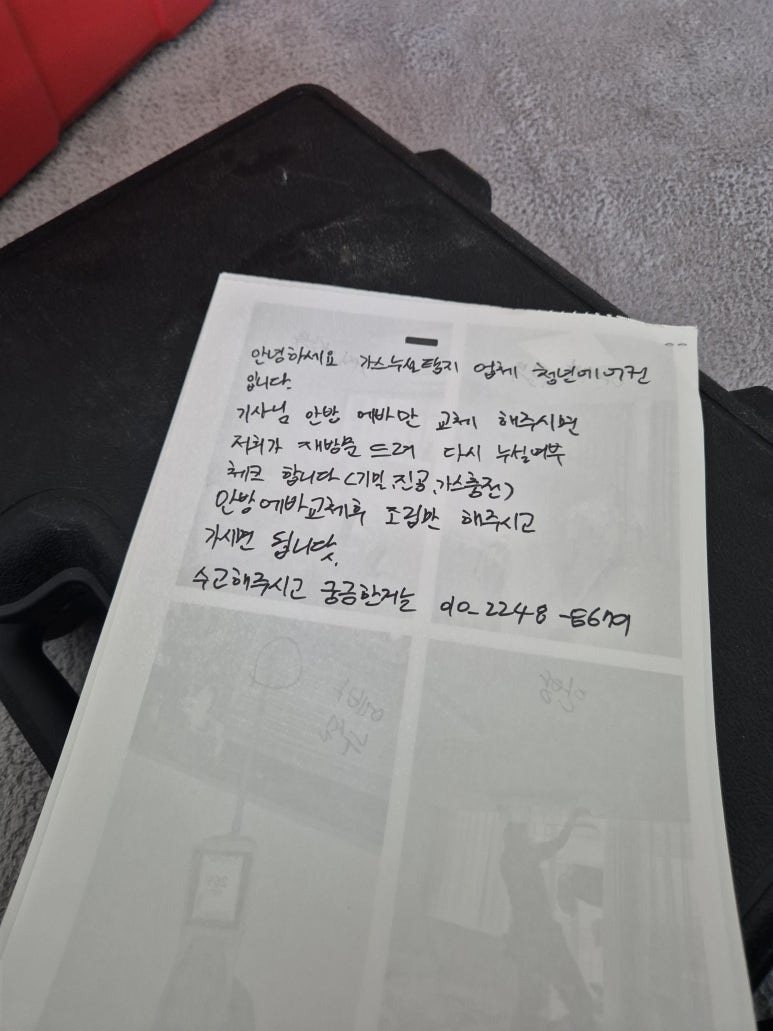 안녕하세요 가스누설탐지 업체 청년에어컨
입니다.
기사님 안방 에바만 교체 해주시면
저희가 재방문 드려 다시 누설여부
체크 합니다(기밀,진공,가스충전)
안방에바교체후 조립만 해주시고
가시면 됩니닷.
수고해주시고 궁금한거는 010_2248
에바
누설
안방